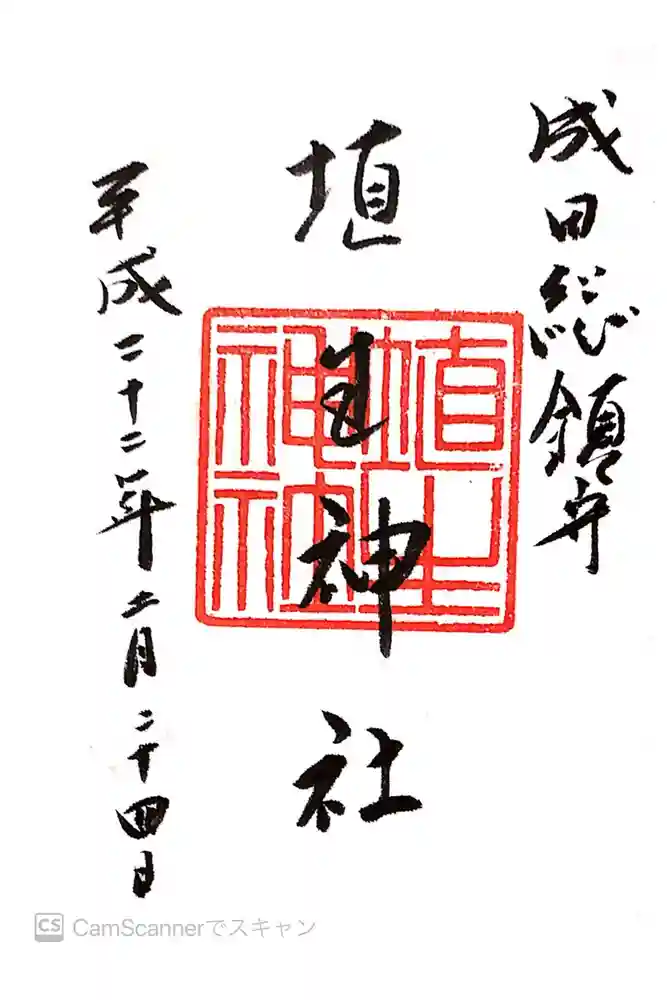 成田総鎮守
埴生神社
埴生神社
平成二十二年十一月二十四日
CS CamScannerでスキャン